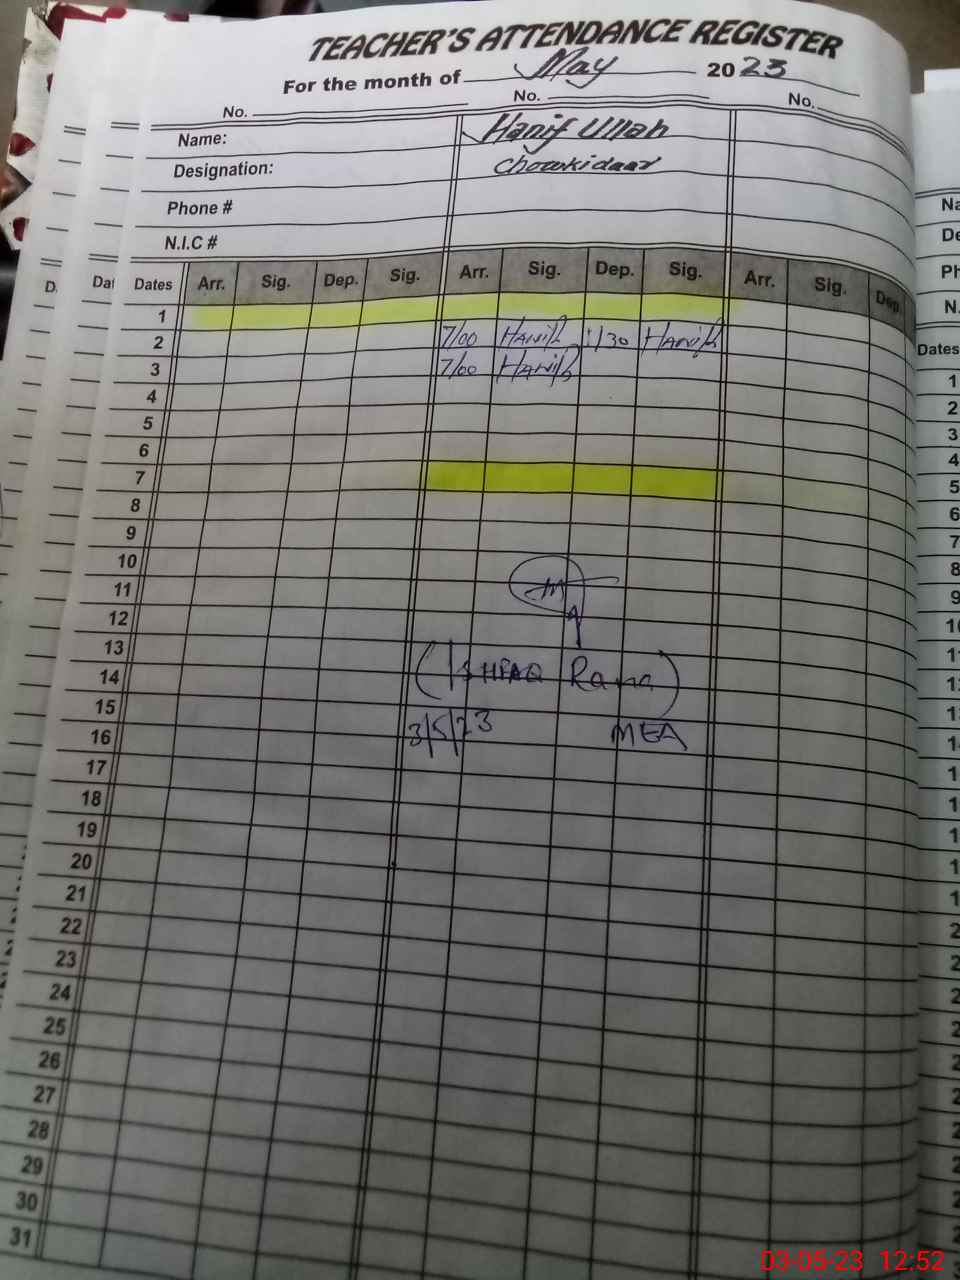 TEACHER'S ATTENDANCE REGISTER
For the month of May 2023
No. No. No.
Name: Hanif Ullah
Designation: Chowkidaar
Phone #
N.I.C #
Dates Arr. Sig. Dep. Sig. Arr. Sig. Dep. Sig. Arr. Sig. Dep.
1
2 7/00 Hanif 1/30 Hanif
3 7/00 Hanif
4
5
6
7
8
9
10
11
12
13
14 (ISHFAQ Rana)
15
16 3/5/23 MEA
17
18
19
20
21
22
23
24
25
26
27
28
29
30
31
Dates
1
2
3
4
5
6
7
8
9
03-05-23 12:52